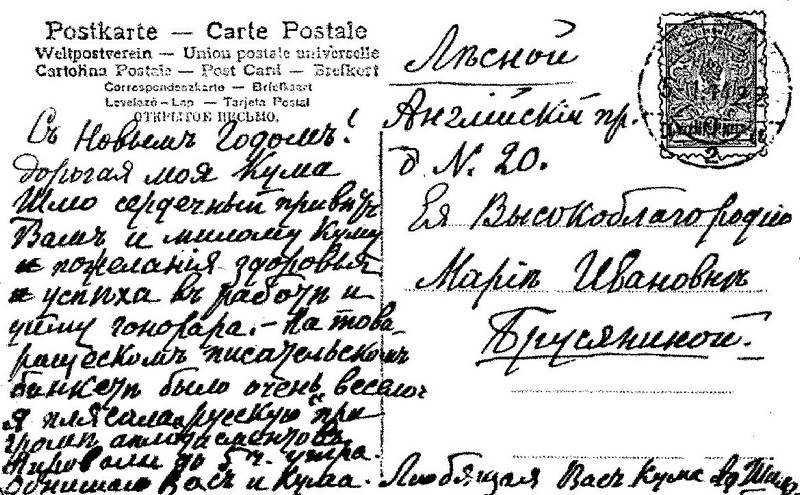 Postkarte — Carte Postale
Weltpostverein — Union postale universelle
Cartolina Postale — Post Card — Brefkort
Correspondenzkarte — Briefkaart
Levelező-Lap — Tarjeta Postal
ОТКРЫТОЕ ПИСЬМО.
Съ Новымъ Годомъ!
дорогая моя Кума
Шлю сердечный привѣтъ
Вамъ и милому Куму
и пожеланія здоровья
и успѣха въ работѣ и
гонорара. — На това-
рищескомъ писательскомъ
банкетѣ было очень весело
я плясала "русскую" при
громѣ апплодисментовъ
Пировали до 5 ч. утра.
Васъ и Кума. Любящая Васъ Кума
Лѣсной
Англійскій пр.
д N. 20.
Ея Высокоблагородію
Маріи Ивановнѣ
Брусяниной.